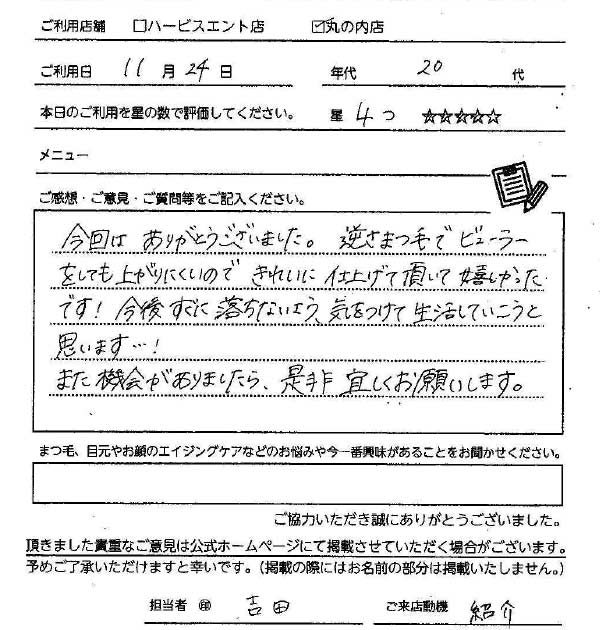 ご利用店舗 □ハービスエント店 ☑丸の内店
ご利用日 11月24日 年代 20 代
本日のご利用を星の数で評価してください。 星 4つ ☆☆☆☆☆
メニュー
ご感想・ご意見・ご質問等をご記入ください。
今回は ありがとうございました。 逆さまつ毛で ビューラー
をしても上がりにくいので きれいに 仕上げて 頂いて 嬉しかった
です! 今後 すぐに 落ちないよう、気をつけて 生活していこうと
思います…!
また 機会が ありましたら、是非 宜しくお願いします。
まつ毛、目元やお顔のエイジングケアなどのお悩みや今一番興味があることをお聞かせください。
ご協力いただき誠にありがとうございました。
頂きました貴重なご意見は公式ホームページにて掲載させていただく場合がございます。
予めご了承いただけますと幸いです。(掲載の際にはお名前の部分は掲載いたしません。)
担当者 ㊞ 吉田 ご来店動機 紹介